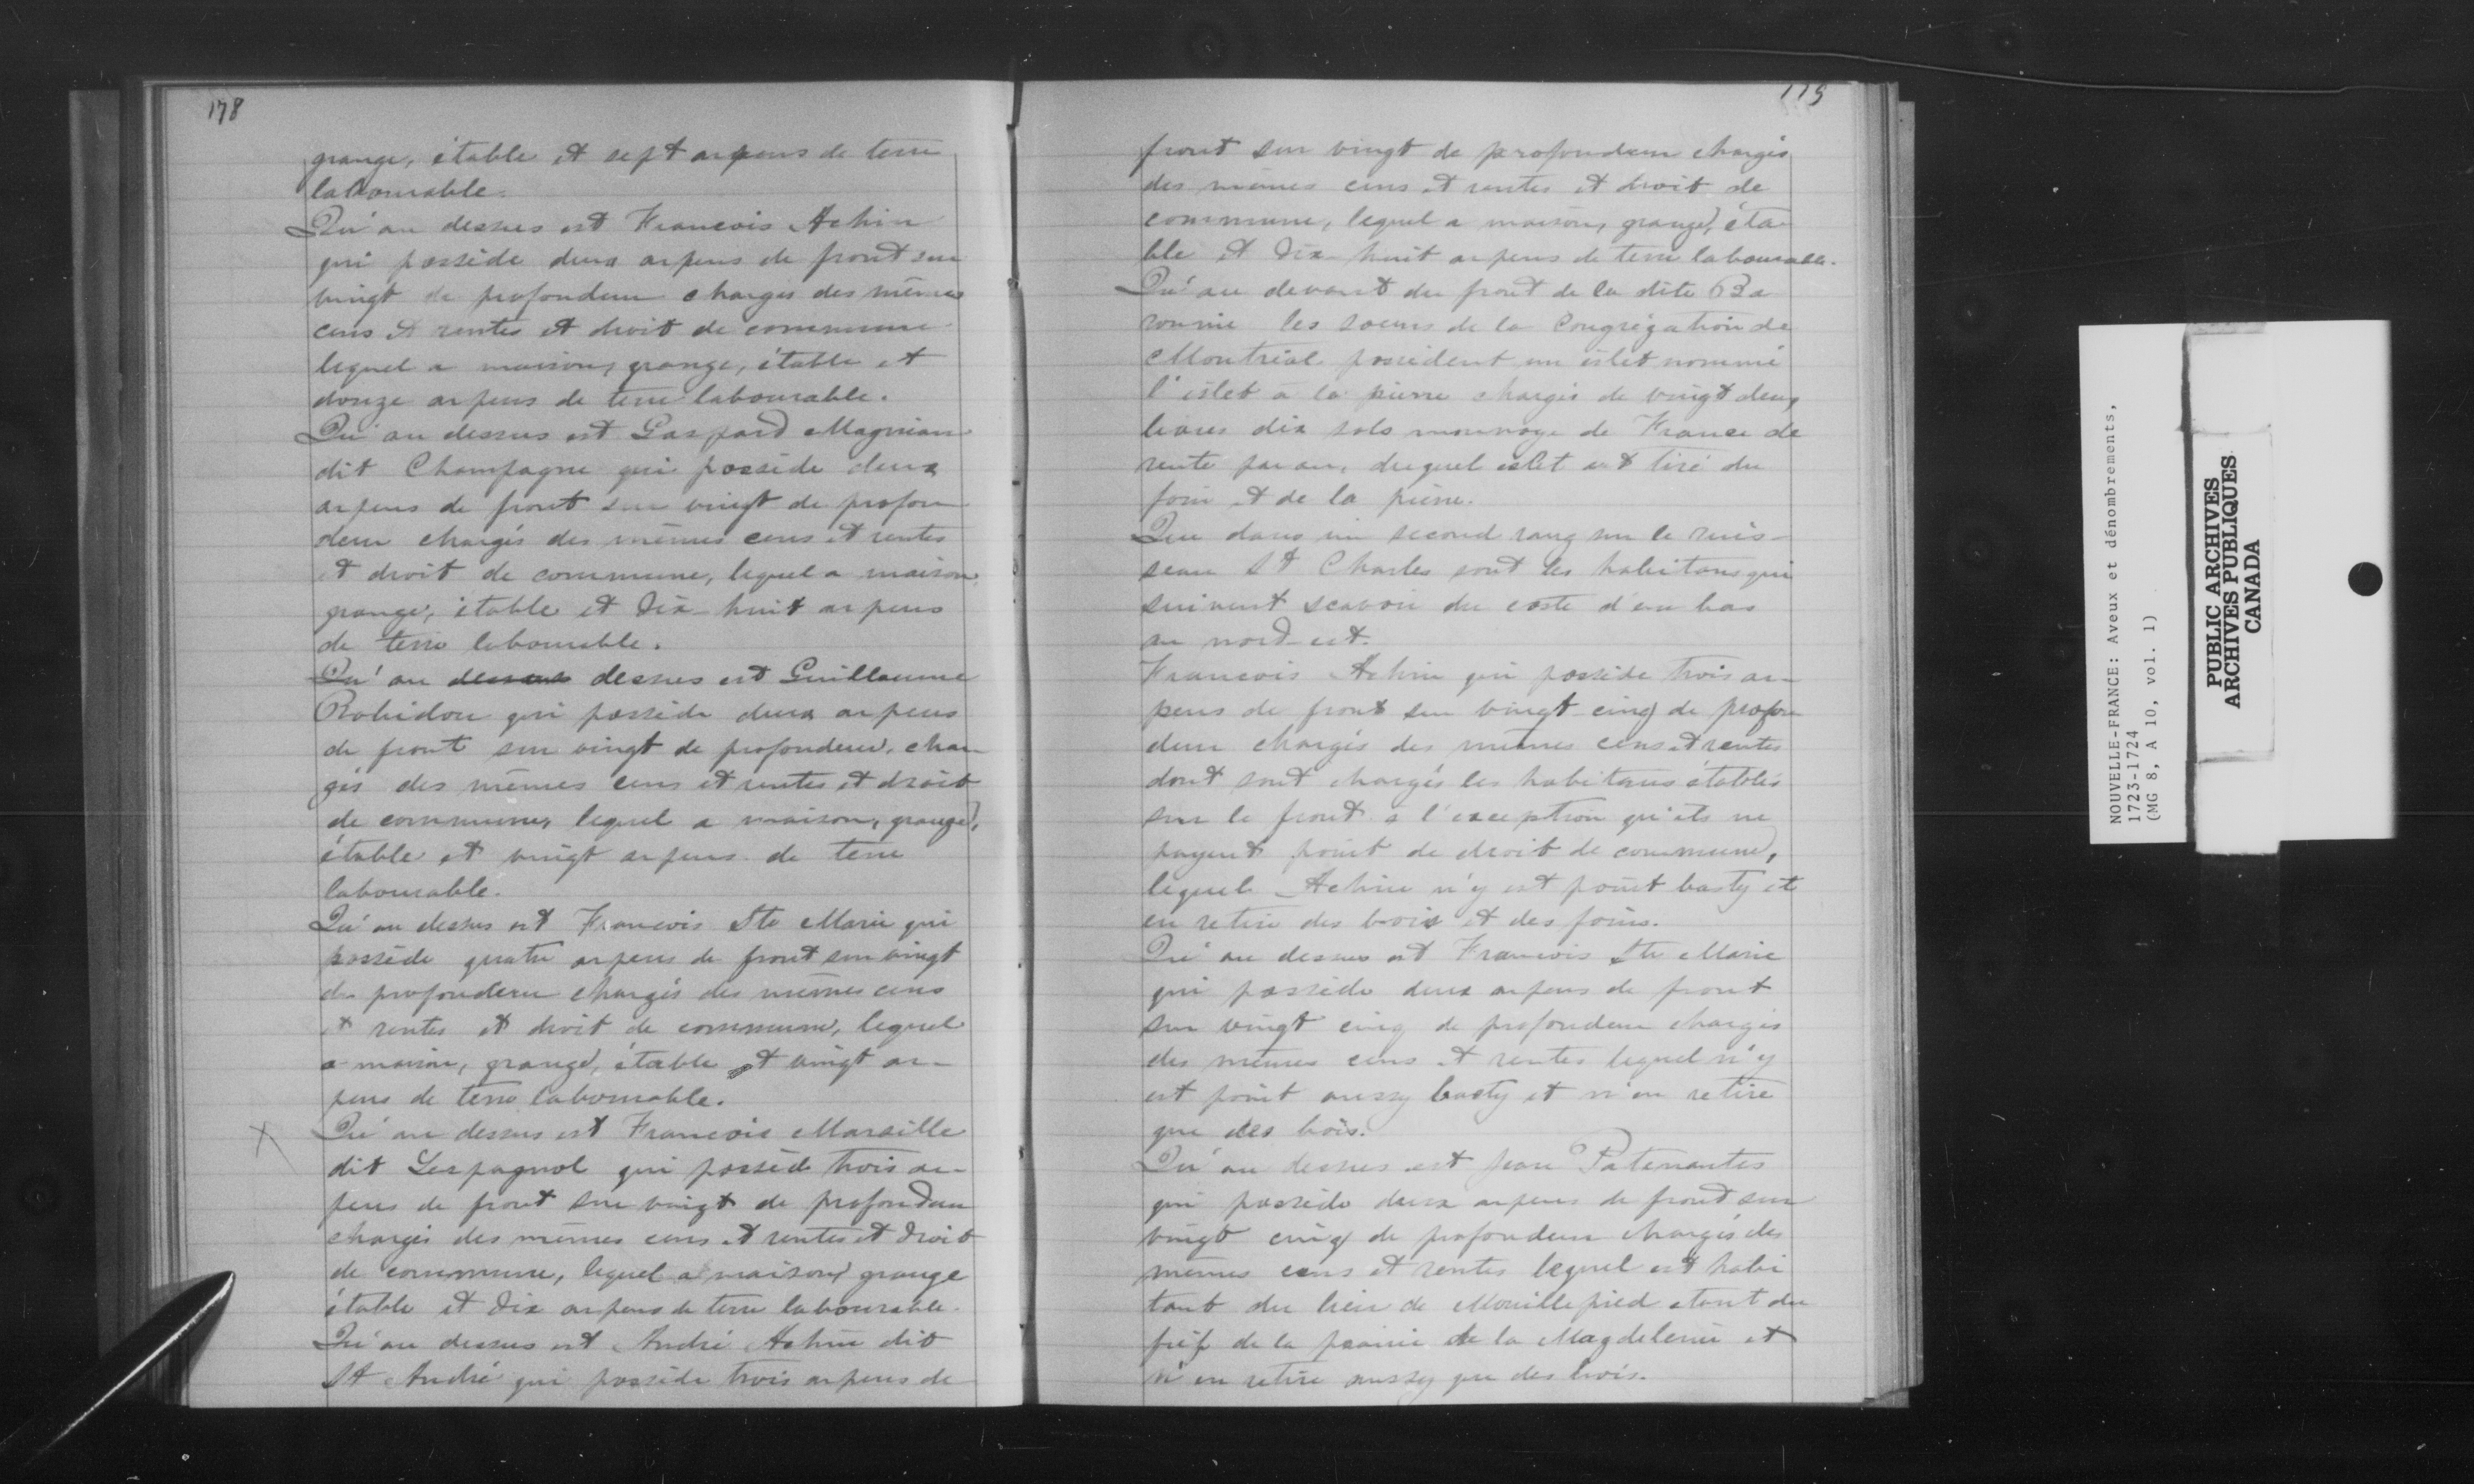 178
grange, étable et sept arpens de terre
labourable.
Qu'au dessus est Francois Achin
qui possède deux arpens de front sur
vingt de profondeur chargés des mêmes
cens et rentes et droit de commune
lequel a maison, grange, étable et
douze arpens de terre labourable.
Qu'au dessus est Gaspard Magnian
dit Champagne qui possède deux
arpens de front sur vingt de profon
deur chargés des mêmes cens et rentes
et droit de commune, lequel a maison,
grange, étable et dix-huit arpens
de terre labourable.
Qu'au dessus est Guillaume
Robidou qui possède deux arpens
de front sur vingt de profondeur, char
gés des mêmes cens et rentes et droit
de commune, lequel a maison, grange,
étable et vingt arpens de terre
labourable.
Qu'au dessus est Francois Ste Marie qui
possède quatre arpens de front sur vingt
de profondeur chargés des mêmes cens
et rentes et droit de commune, lequel
a maison, grange, étable et vingt ar-
pens de terre labourable.
X Qu'au dessus est Francois Maraille
dit Lespagnol qui possède trois ar-
pens de front sur vingt de profondeur
chargés des mêmes cens et rentes et droit
de commune, lequel a maison, grange
étable et dix arpens de terre labourable.
Qu'au dessus est André Achin dit
St André qui possède trois arpens de
179
front sur vingt de profondeur chargés
des mêmes cens et rentes et droit de
commune, lequel a maison, grange, éta-
ble et dix-huit arpens de terre labourable.
Qu'au devant du front de la dite Ba
ronnie les soeurs de la Congrégation de
Montréal possèdent un islet nommé
l'islet à la pierre chargés de vingt deux
livres dix sols monnoye de France de
rente par an, duquel islet est tiré du
foin et de la pierre.
Que dans un second rang sur le ruis-
seau St Charles sont les habitans qui
suivent scavoir du coste d'en bas
au nord-est.
Francois Achin qui possède trois ar-
pens de front sur vingt-cinq de profon
deur chargés des mêmes cens et rentes
dont sont chargés les habitans établis
sur le front a l'exception qu'ils ne
payent point de droit de commune,
lequel Achin n'y est point basty et
en retire des bois et des foins.
Qu'au dessus est Francois Ste Marie
qui possède deux arpens de front
sur vingt cinq de profondeur chargés
des mêmes cens et rentes lequel n'y
est point aussy basty et n'en retire
que des bois.
Qu'au dessus est Jean Patenautes
qui possède deux arpens de front sur
vingt cinq de profondeur chargés des
mêmes cens et rentes lequel est habi
tant du lieu de Mouillepied étant du
fief de la prairie de la Magdeleine et
n'en retire aussy que des bois.
NOUVELLE-FRANCE: Aveux et dénombrements,
1723-1724
(MG 8, A 10, vol. 1)
PUBLIC ARCHIVES
ARCHIVES PUBLIQUES
CANADA